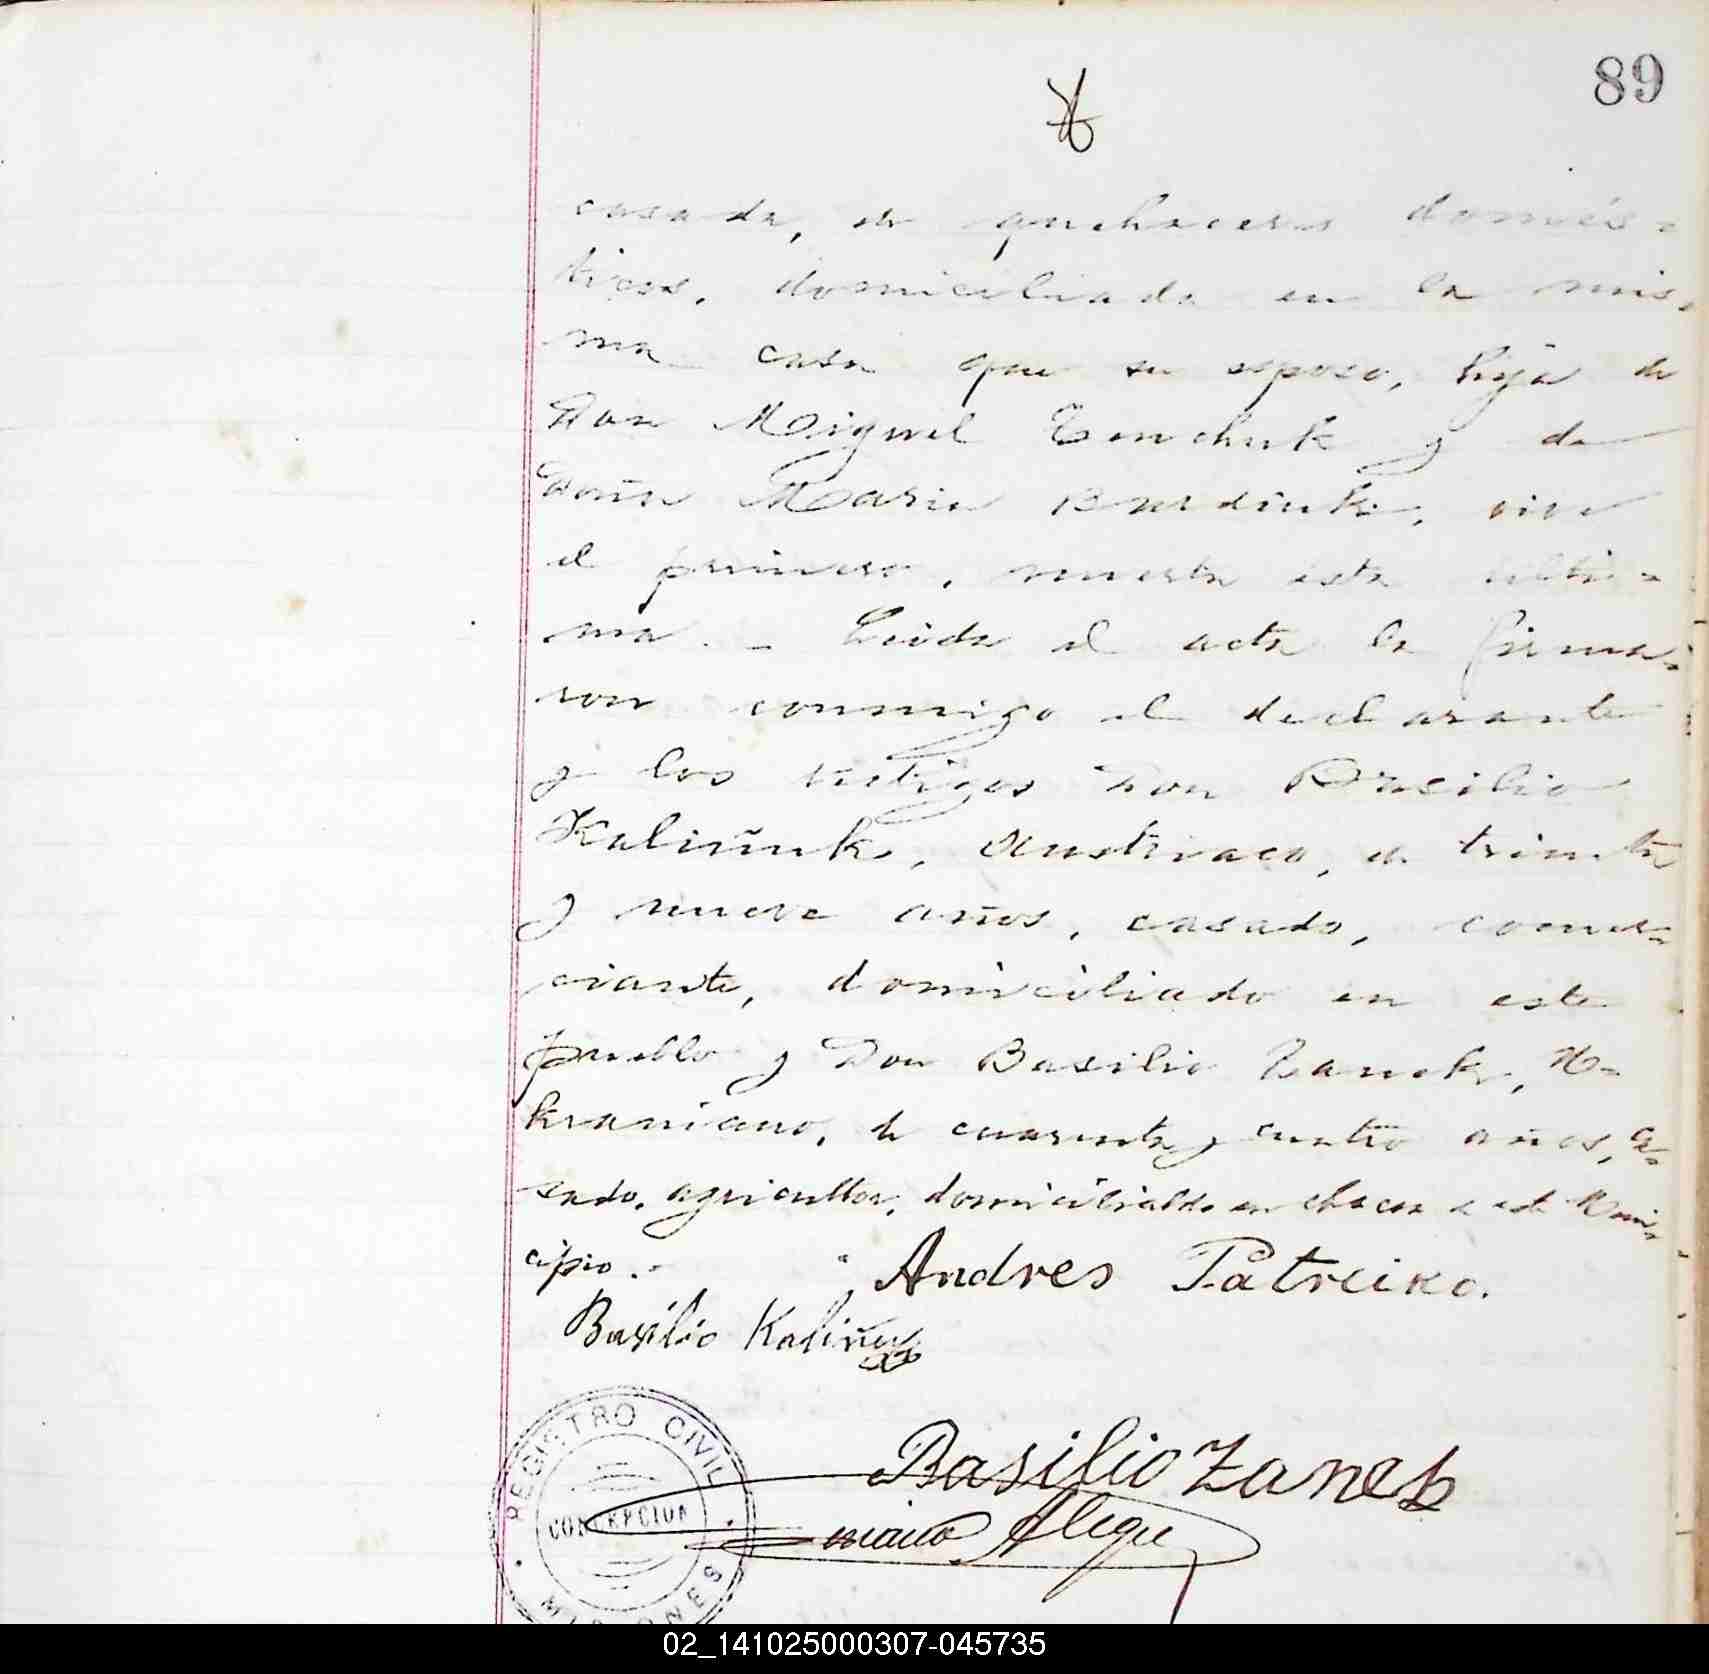 89
casada, de quehaceres domés-
ticos, domiciliada en la mis-
ma casa que su esposo, hija de
Don Miguel Tenchuk y de
Doña Maria Burdiuk, vive
el primero, muerta esta ulti-
ma. - Leida el acta la firma-
ron conmigo el declarante
y los testigos Don Basilio
Kaliñuk, Austriaco, de treinta
y nueve años, casado, comer-
ciante, domiciliado en este
pueblo y Don Basilio Zanek, U-
kraniano, de cuarenta y cuatro años, ca-
sado, agricultor, domiciliado en chacra de este Muni-
cipio. -
Andres Patreiko.
Basilio Kaliñuk
REGISTRO CIVIL
CONCEPCION
MISIONES
Basilio Zanek
Alegre
02_141025000307-045735